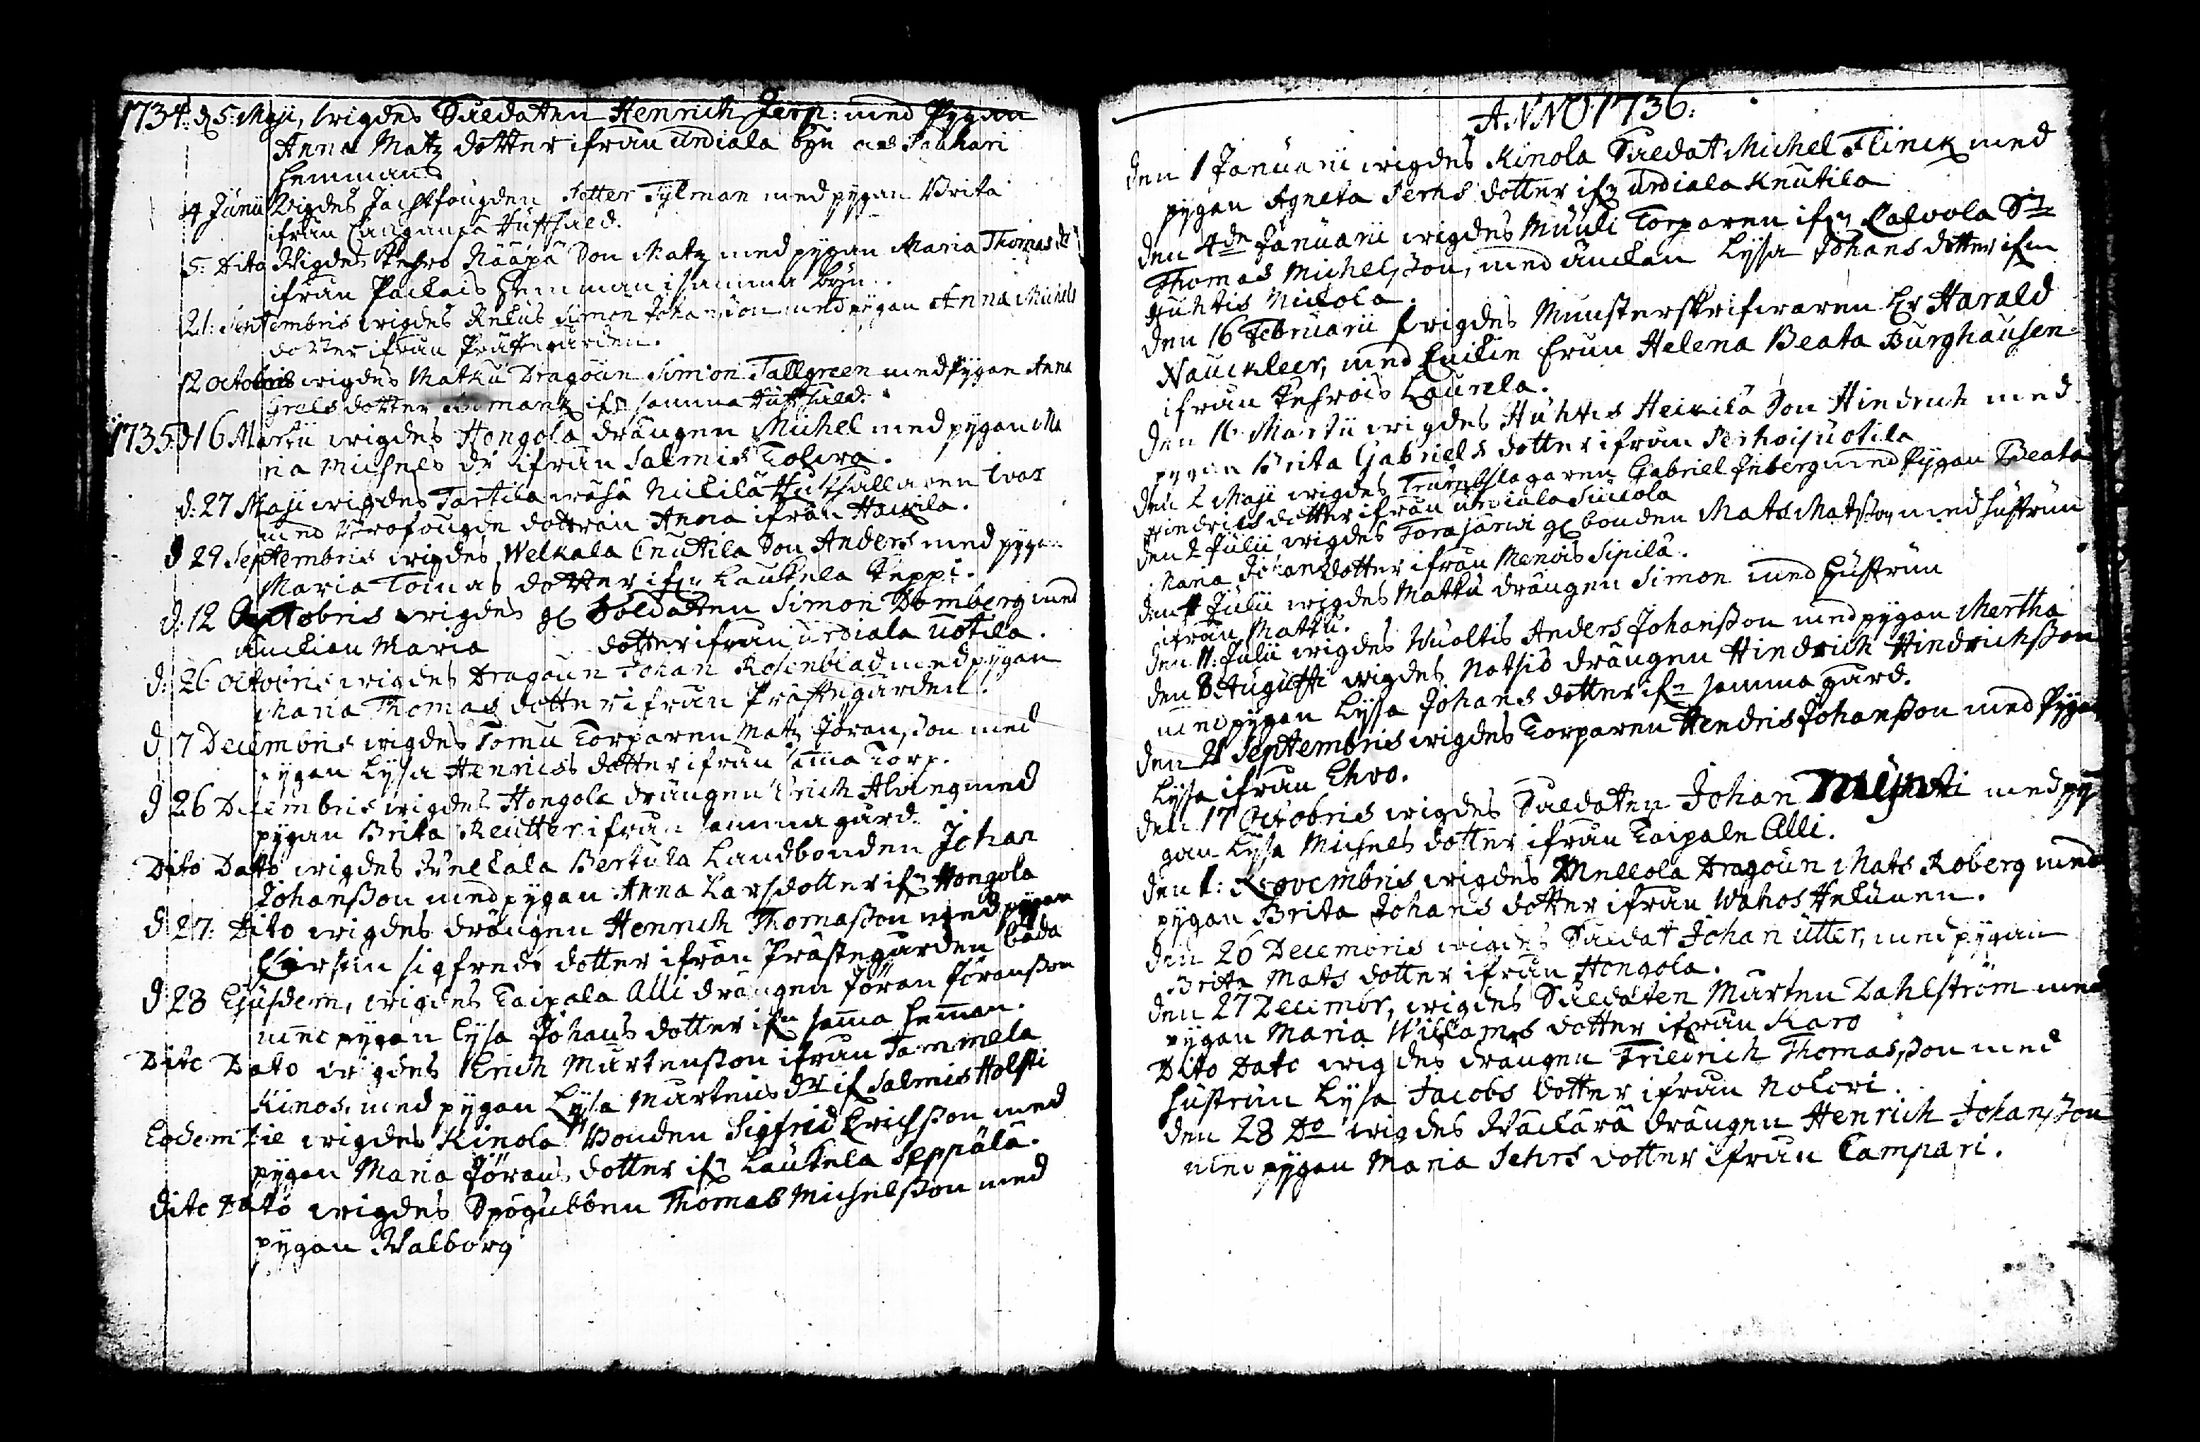 1734. d 5. Maji, wigdes Saldaten Henrich Jerp: med Pygan
Anna Matz dotter ifrån Urdiala byn och Pakkari
hemmans
4 Junii Wigdes Jachtfougden Petter Tylman med pygan Brita
ifrån Cangansa Hußhåld.
5. Dito Wigdes Kehro Nääpä Son Matz med pygan Maria Thomas dr
ifrån Paclais Hemman i samma byn.
21. Septembris wigdes Simon Johansson med pygan Anna Michels
dotter ifrån Prästegården.
12 octobris wigdes Matku Dragoun Simon Tallgreen med Pygan Anna
Grels dotter ifn samma Hußhåld.
1735. d 16 Martii wigdes Hongola drängen Michel med pygan Ma
ria Michels dr ifrån Salmis Tolira.
d: 27 Maji wigdes Nickilä Hußhållaren Ivar
med Profougde dottran Anna ifrån Haucila.
d 29 Septembris wigdes Welkala Cnutila Son Anders med pygan
Maria Tomas dotter ifrn Lautela Seppi.
d: 12 Octobris wigdes gl Soldaten Simon Domberg med
änckian Maria dotter ifrån Urdiala Uotila.
d: 26 octobris wigdes Dragoun Johan Rosenblad med pygan
Maria Thomas dotter ifrån Prästegården.
d 17 Decembris wigdes Tomu Torparen Matz Jöransson med
pygan Lysa Henrichs dotter ifrån samma Torp.
d 26 Decembris wigdes Hongola drängen Erich Alving med
pygan Brita Reutter ifrån samma gård.
Dito Dato wigdes Bertula Landbonden Johan
Johansson med pygan Anna Larsdotter ifrn Hongola
d 27: Dito wigdes drängen Henrich Thomasson med pygan
Kirstin Sigfreds dotter ifrån Prästegården båda
d: 28 Ejusdem, wigdes Taipala Alli drängen Jöran Jöransson
med pygan Lysa Johans dotter ifrn samma Hemman.
Dito Dato wigdes Erich Mårtensson ifrån Tammela
Kinos, med pygan Lysa Mårtens dr if Salmis Holsti
Eodem Die wigdes Kinola Bonden Sigfrid Erichsson med
pygan Maria Jörans dotter ifn Lautela Seppälä.
Dito Dato wigdes Spögubben Thomas Michelsson med
pygan Walborg
ANNO 1736.
den 1 Januarii wigdes Kinola Saldat Michel Flinck med
pygan Agneta Pehrs dotter ifn Urdiala Knutila
den 4de Januarii wigdes Muuli Torparen ifrn Calvola Sn
Thomas Michelsson, med änckan Lyssa Johans dotter ifrn
Huhtis Nickola.
den 16 Februarii wigdes Munsterskrifwaren Hr Harald
Nauckleer, med Encke frun Helena Beata Burghausen
ifrån Kehrois Laurela.
den 16 Martii wigdes Huhtis Heickilä Son Hindrich med
pygan Brita Gabriels dotter ifrån Uotila
den 2 Maji wigdes Trumbslagaren Gabriel Inberg med Pygan Beata
Hindrichs dotter ifrån Urdiala Suckola
den 2 Julii wigdes Torajärwi gl bonden Mats Matsson med hustrun
Maria Johansdotter ifrån Menois Sipilä.
den 4 Julii wigdes Matku drängen Simon med Hustrun
ifrån Matku.
den 11. Julii wigdes Wuoltis Anders Johansson med pygan Mertha
den 8 Augusti wigdes Notsiö drängen Hindrich Hindrichsson
med pygan Lyssa Johans dotter ifrn samma gård.
den 21 Septembris wigdes Torparen Hendris Johansson med Pygan
Lyssa ifrån Ehro.
den 17 Octobris wigdes Saldaten Johan Mynti med py
gan Lyssa Michels dotter ifrån Taipale Alli.
den 1: Novembris wigdes Mellola Dragoun Mats Roberg med
pygan Brita Johans dotter ifrån Wahos Helunen.
den 26 Decembris wigdes Saldat Johan Utter, med pygan
Brita Mats dotter ifrån Hongola.
den 27 Decembr, wigdes Saldaten Mårten Dahlström med
pygan Maria Willams dotter ifrån Karo
Dito Dato wigdes drängen Friedrich Thomasson med
hustrun Lysa Jacobs dotter ifrån Nokori.
den 28 Do wigdes Wäckärä drängen Henrich Johansson
med pygan Maria Pehrs dotter ifrån Campari.